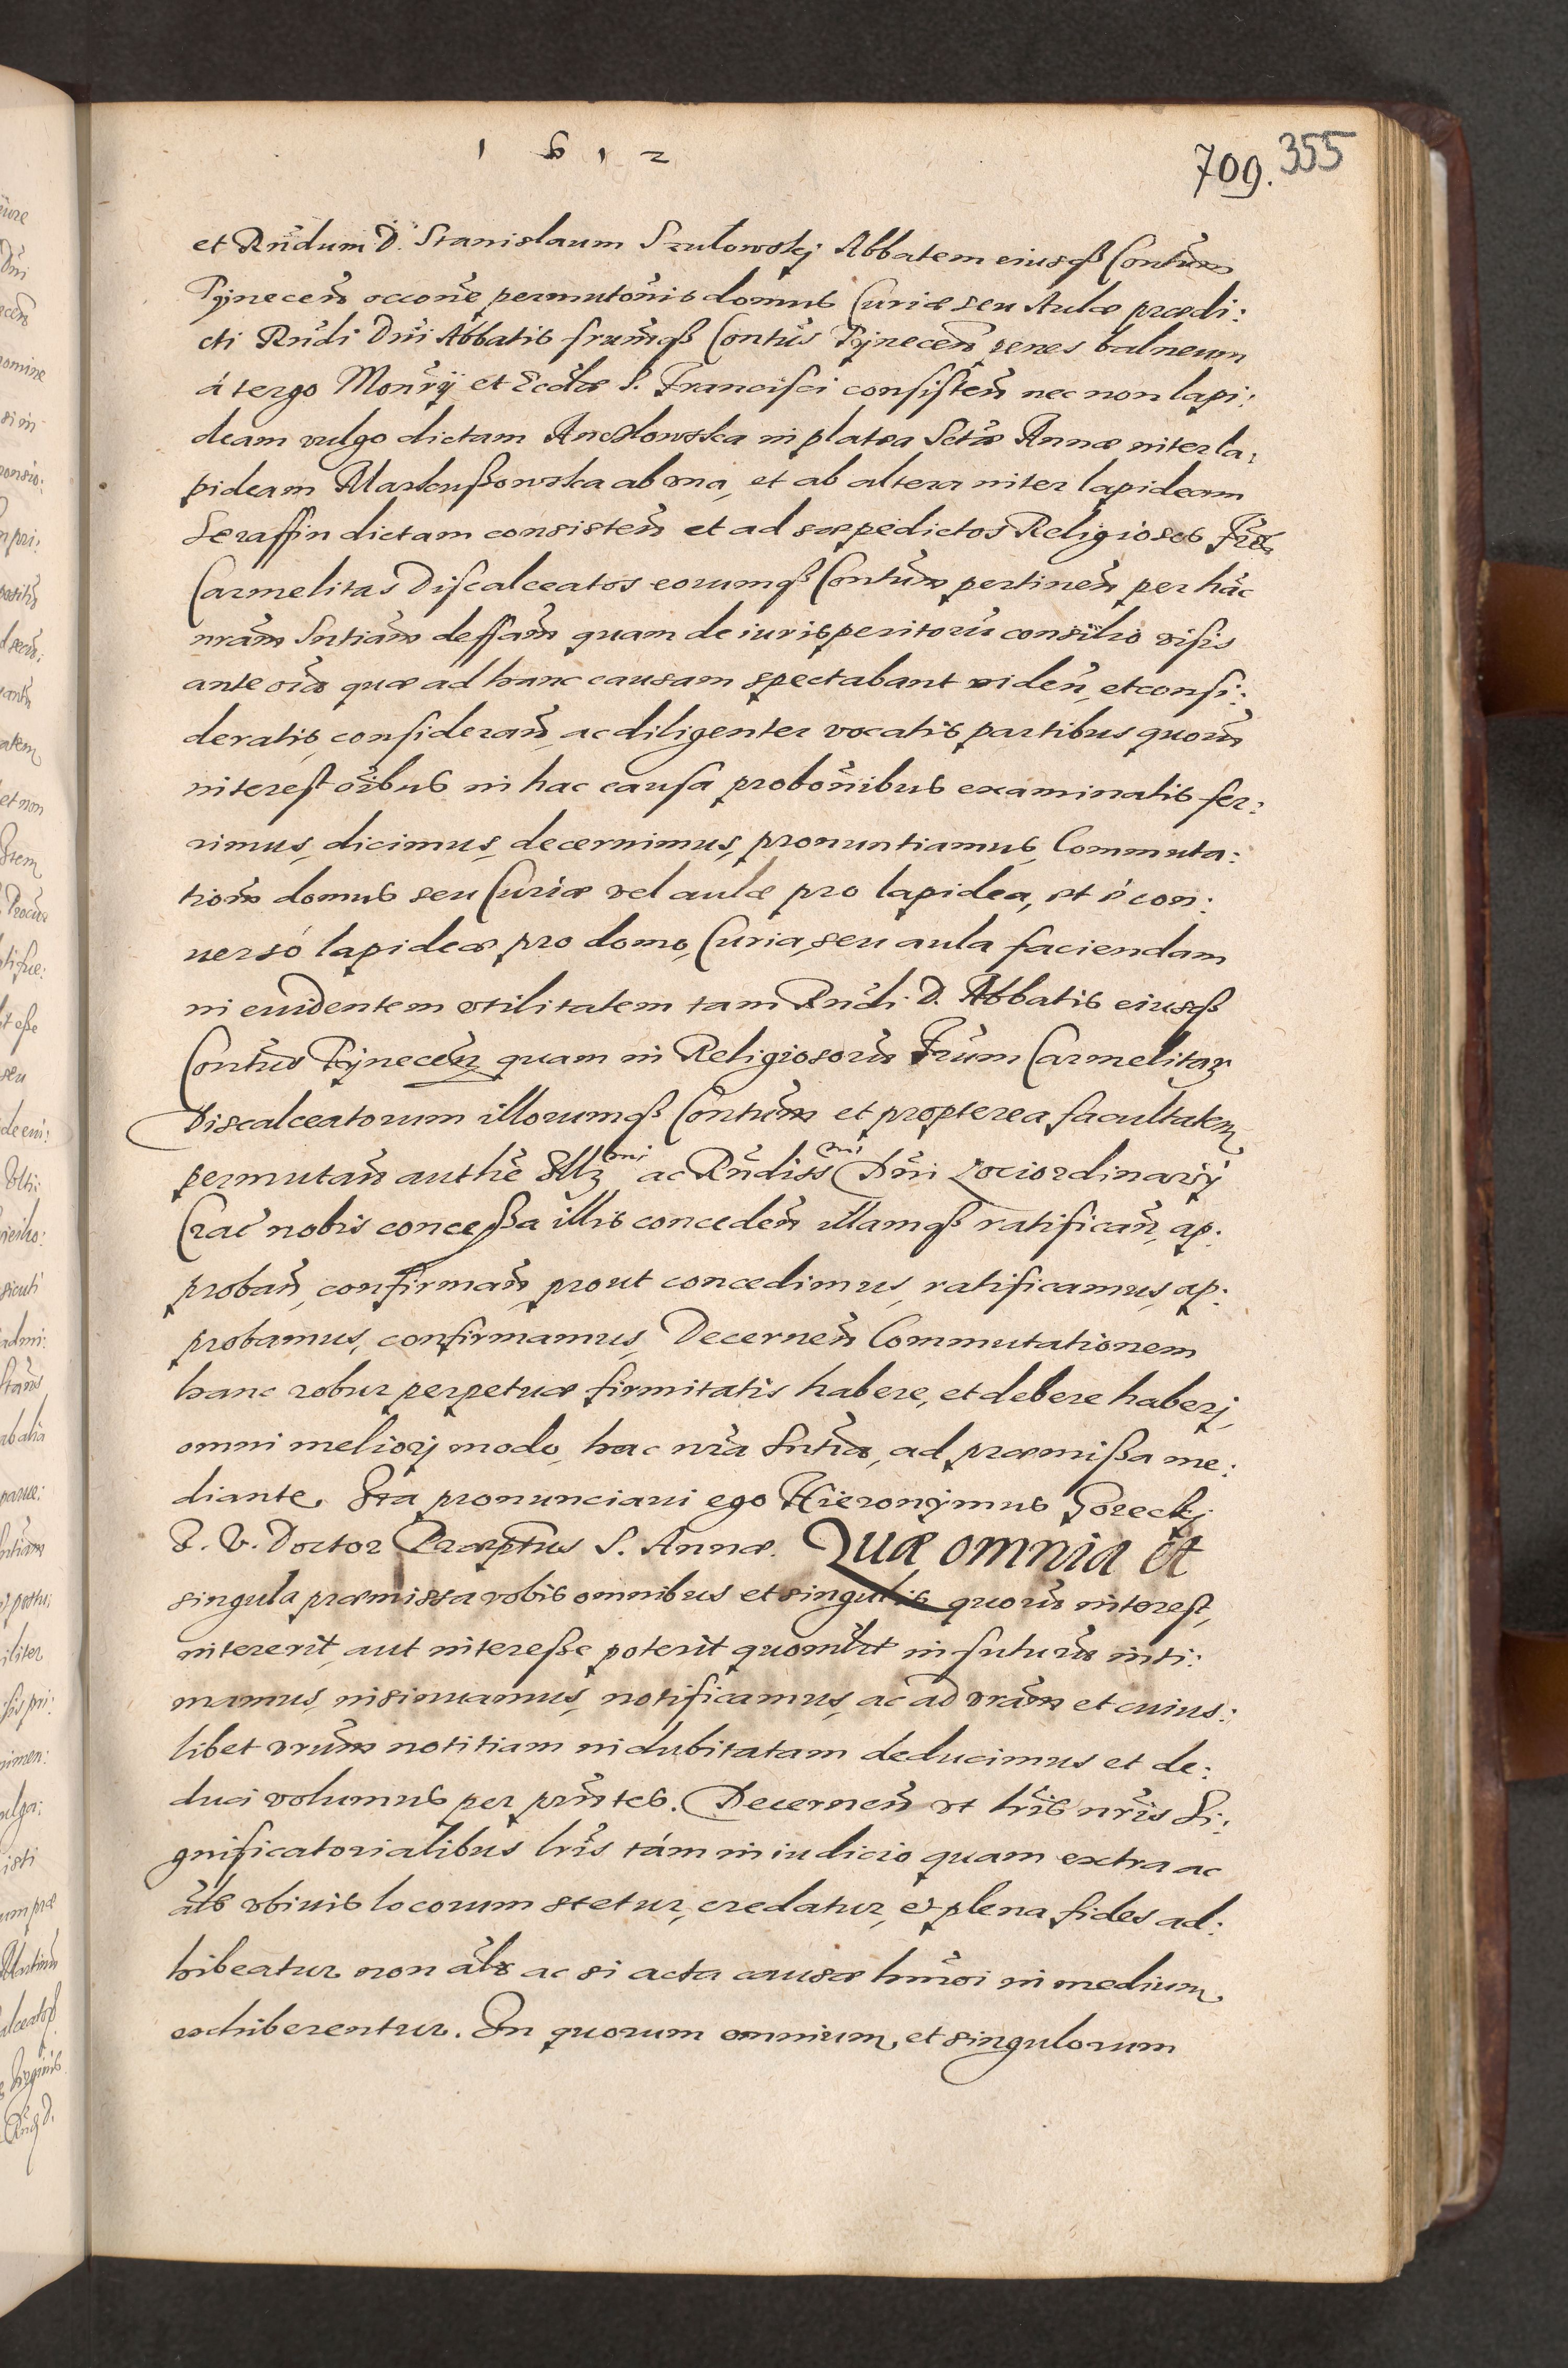 1612
709. 355
et Rndum D. Stanislaum Szułowskj Abbatem eiusqß Contum
Tÿnecen̄ occone permutonis domus Curiæ seu Aulæ prædi:
cti Rndi Dni Abbatis frumqß Contus Tÿnecen̄ penes balneum
á tergo Monrÿ et Eccliæ S. Francisci consisten̄ nec non lapi:
deam vulgo dictam in platea Sctæ Annæ inter la:
pideam ab vna, et ab altera inter lapideam
Seraffin dictam consisten̄ et ad sæpedictos Religiosos Frēs
Carmelitas Discalceatos eorumqß Contum pertinen̄ per hāc
nrām Sntiām deffām quam de iurisperitorū consilio visis
ante oīa quæ ad hanc causam spectabant viden̄, et consi:
deratis, consideran̄, ac diligenter vocatis partibus quorū
interest oībus in hac causa probōnibus examinatis fer:
rimus, dicimus, decernimus, pronuntiamus, Commuta:
tionē domus seu Curiæ vel aulæ pro lapidea, et è con:
uersó lapideæ pro domo, Curia, seu aula faciendam
in euidentem vtilitatem tam Rndi. D. Abbatis eiusqß
Contus Tÿnecen̄ quam in Religiosorū Frūm Carmelitar̄
Discalceatorum illorumqß Contum et propterea facultatem
permutan̄ authē Illmi ac Rndissmi Dni Lociordinarÿ
Crac̄ nobis conceßa illis conceden̄ illamqß ratifican̄, ap:
proban̄, confirman̄, prout concedimus, ratificamus, ap:
probamus, confirmamus, Decernen̄ Commutationem
hanc robur perpetuæ firmitatis habere, et debere haberj,
omni meliorj modo, hac nrā Sntiā, ad præmißa me:
diante. Ita pronunciaui ego Hieronÿmus Goreckj
I. V. Doctor Præptus S. Annæ. Quæ omnia et
singula præmissa vobis omnibus et singulis quorū interest,
intererit, aut intereße poterit quomlbt in futurū inti:
mamus, insinuamus, notificamus, ac ad vrām et cuius:
libet vrūm notitiam indubitatam deducimus et de:
duci volumus per pn̄tes. Decernen̄ vt lrīs nrīs Si:
gnificatorialibus lrīs tám in iudicio quam extra ac
āls vbiuis locorum stetur, credatur, et plena fides ad:
hibeatur non āls ac si acta causæ hmōi in medium
exhiberentur. In quorum omnium, et singulorum